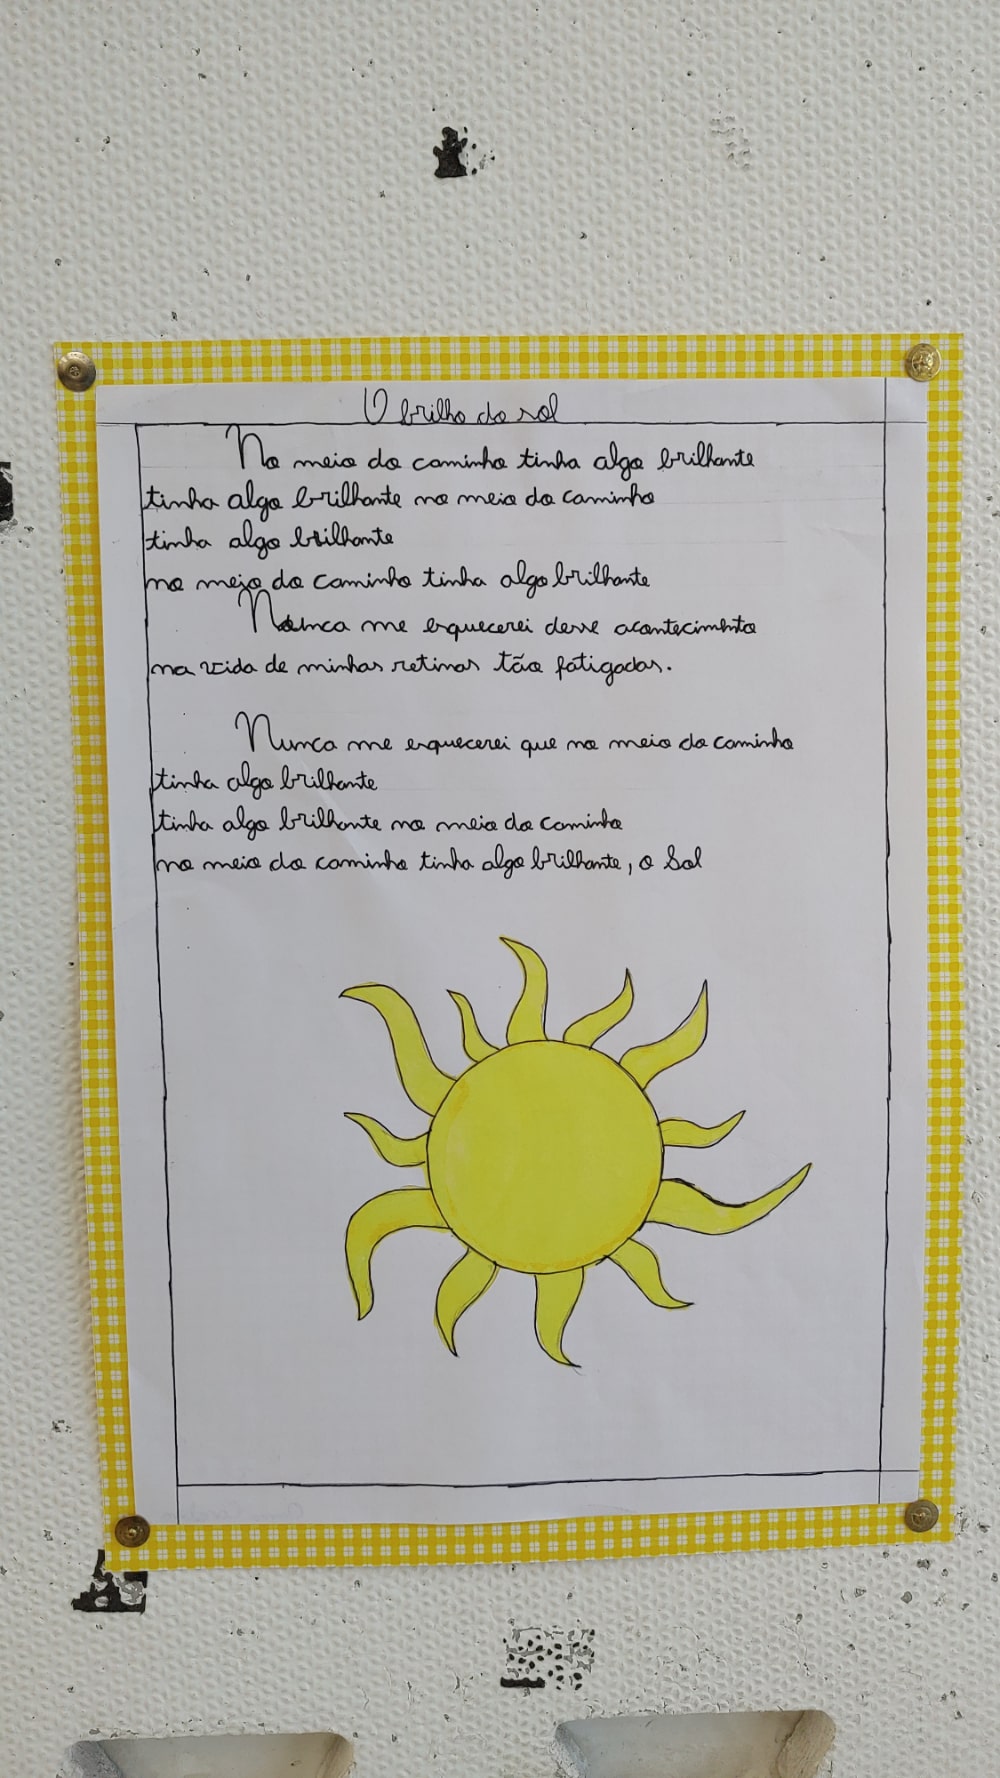 O brilho do sol
No meio do caminho tinha algo brilhante
tinha algo brilhante no meio do caminho
tinha algo brilhante
no meio do caminho tinha algo brilhante
Nunca me esquecerei desse acontecimento
na vida de minhas retinas tão fatigadas.
Nunca me esquecerei que no meio do caminho
tinha algo brilhante
tinha algo brilhante no meio do caminho
no meio do caminho tinha algo brilhante, o Sol